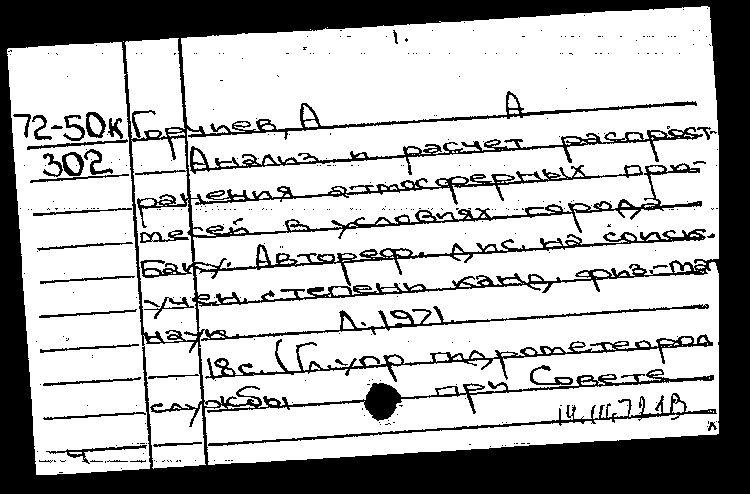 1.
72-50к Горчиев, А А
302 Анализ и расчет распрост-
ранения атмосферных при-
месей в условиях города
Баку. Автореф. дис. на соиск.
учен. степень канд. физ.-мат
наук. Л., 1971.
18с. (Гл. упр гидрометеорол
службы при Совете
14.III.72 1В
ч